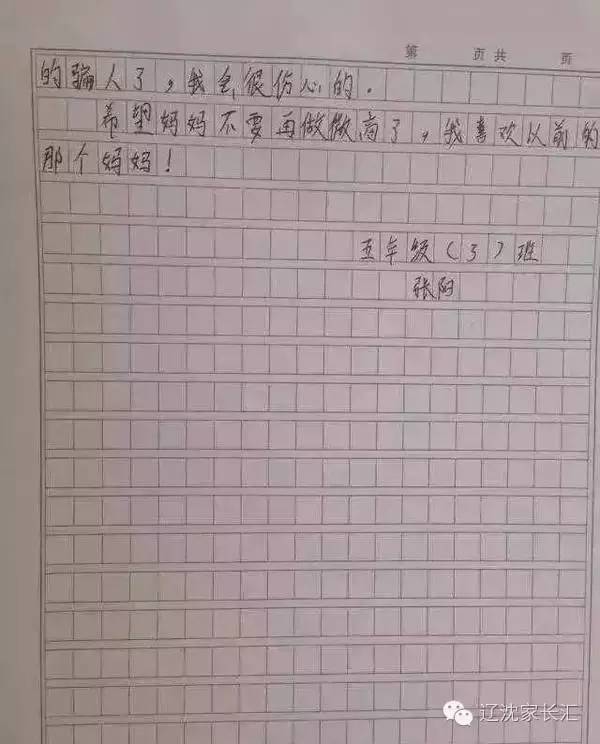 第 页 共 页
的骗人了，我会很伤心的。
希望妈妈不要再做微商了，我喜欢以前的
那个妈妈！
五年级（3）班
张阳
辽沈家长汇